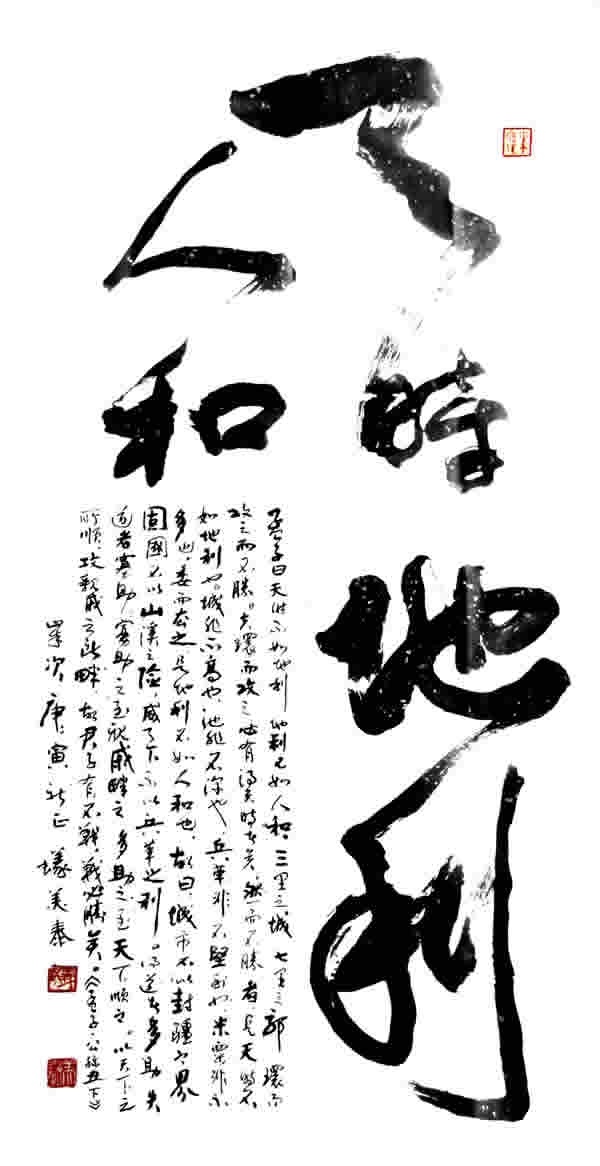 天時地利
人和
孟子曰天时不如地利地利不如人和三里之城七里之郭環而
攻之而不勝。夫環而攻之必有得天時者矣然而不勝者是天時不
如地利也。城非不高也池非不深也兵革非不堅利也米粟非不
多也委而去之是地利不如人和也故曰域民不以封疆之界
固國不以山溪之險威天下不以兵革之利。得道者多助失
道者寡助寡助之至親戚畔之多助之至天下順之。以天下之
所順攻親戚之所畔故君子有不戰戰必勝矣。《孟子·公孫丑下》
歲次庚寅新正 美泰